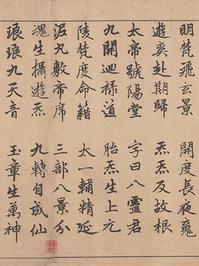 明梵飛玄景 開度長夜魂
遊爽赴期歸 炁炁反故根
太帝號陽堂 字曰八靈君
九開迴綠道 胎炁生上元
陵梵度命籍 太一輔精延
泥丸敷帝席 三部八景分
魂生攝遊炁 九轉自成仙
琅琅九天音 玉章生萬神